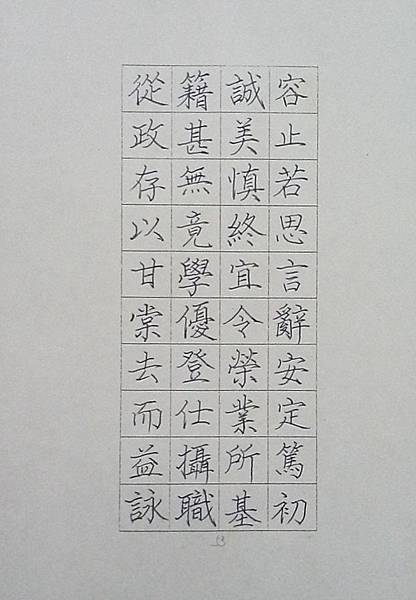 容止若思言辭安定篤初
誠美慎終宜令榮業所基
籍甚無竟學優登仕攝職
從政存以甘棠去而益詠